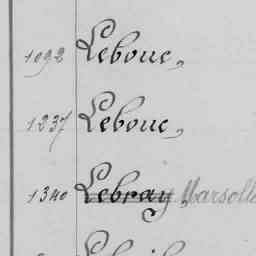 1092 Lebouc,
1237 Lebouc,
1340 Lebray, Marsoll